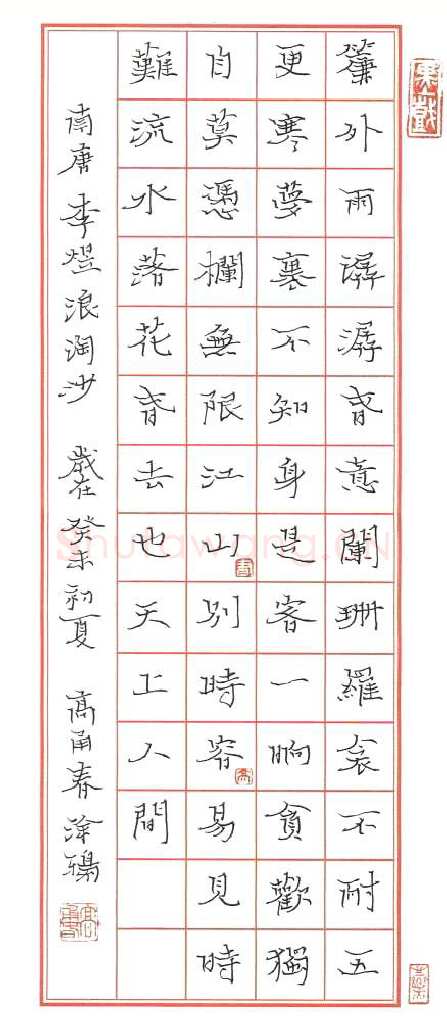 簾外雨潺潺春意闌珊羅衾不耐五
更寒夢裏不知身是客一晌貪歡獨
自莫憑欄無限江山別時容易見時
難流水落花春去也天上人間
南唐李煜浪淘沙 歲在癸未初夏 高甬春涂鴉
Shufawang.CN